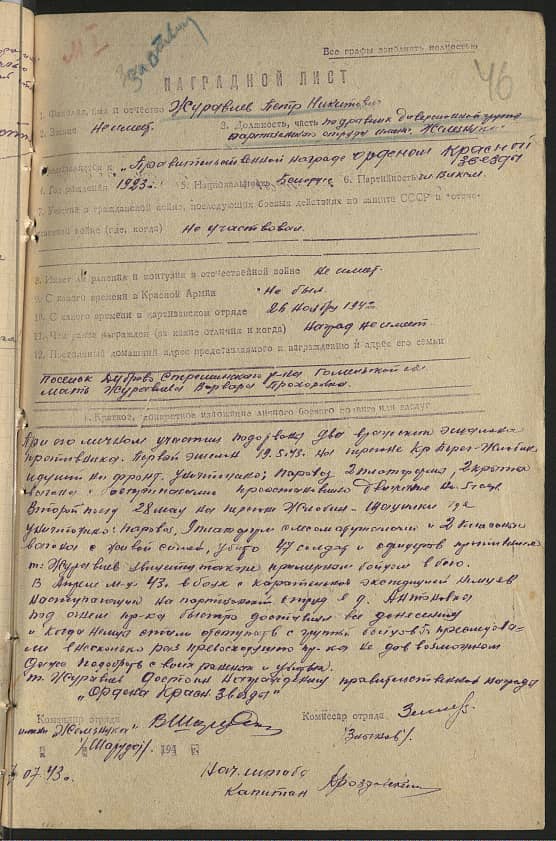 Все графы заполнять полностью
46
НАГРАДНОЙ ЛИСТ
1. Фамилия, имя и отчество Журавлев Петр Никитович
2. Звание Не имеет. 3. Должность, часть подрывник диверсионной группы
партизанского отряда имени Железняка
Представляется к "Правительственной награде орденом Красной
звезды
4. Год рождения 1923г. 5. Национальность Белорус 6. Партийность
7. Участие в гражданской войне, последующих боевых действиях по защите СССР и отече-
ственной войне (где, когда) Не участвовал.
8. Имеет ли ранения и контузии в отечественной войне Не имеет.
9. С какого времени в Красной Армии Не был.
10. С какого времени в партизанском отряде 26 Ноября 1942
11. Чем ранее награжден (за какие отличия и когда) Наград не имеет
12. Постоянный домашний адрес представляемого к награждению и адрес его семьи
Поселок Дуброво Стрешинского р-на Гомельской обл.
Мать Журавлева Варвара Прохоровна.
1. Краткое, конкретное изложение личного боевого подвига или заслуг
При его личном участии подорвано два вражеских эшелона
противника. Первый эшелон 19.5.43. на перегоне Кр. Берег-Жлобин
идущий на фронт. Уничтожено: паровоз 2 платформы, 2 крытых
вагона приостановлено движение на
Второй поезд 28 мая на перегоне Жлобин - где
уничтожено: паровоз, и 2 классных
вагона с живой силой, убито 47 солдат и офицеров противника
т. Журавлев является также примерным бойцом в бою.
В Апреле м-це 43. в боях с карательной экспедицией немцев
наступающей на партизанский отряд в д. Антоновка
под огнем пр-ка быстро доставлял все донесения
и когда немцы стали отступать с группой бойцов преследова-
ли в несколько раз превосходящего пр-ка не дав возможности
даже подобрать своих раненых и убитых.
т. Журавлев Достоин награждения правительственной награды
"Ордена Красн. Звезды"
Командир отряда Комиссар отряда
имени Железняка"
194 г.
07.43г.
Нач. штаба
Капитан